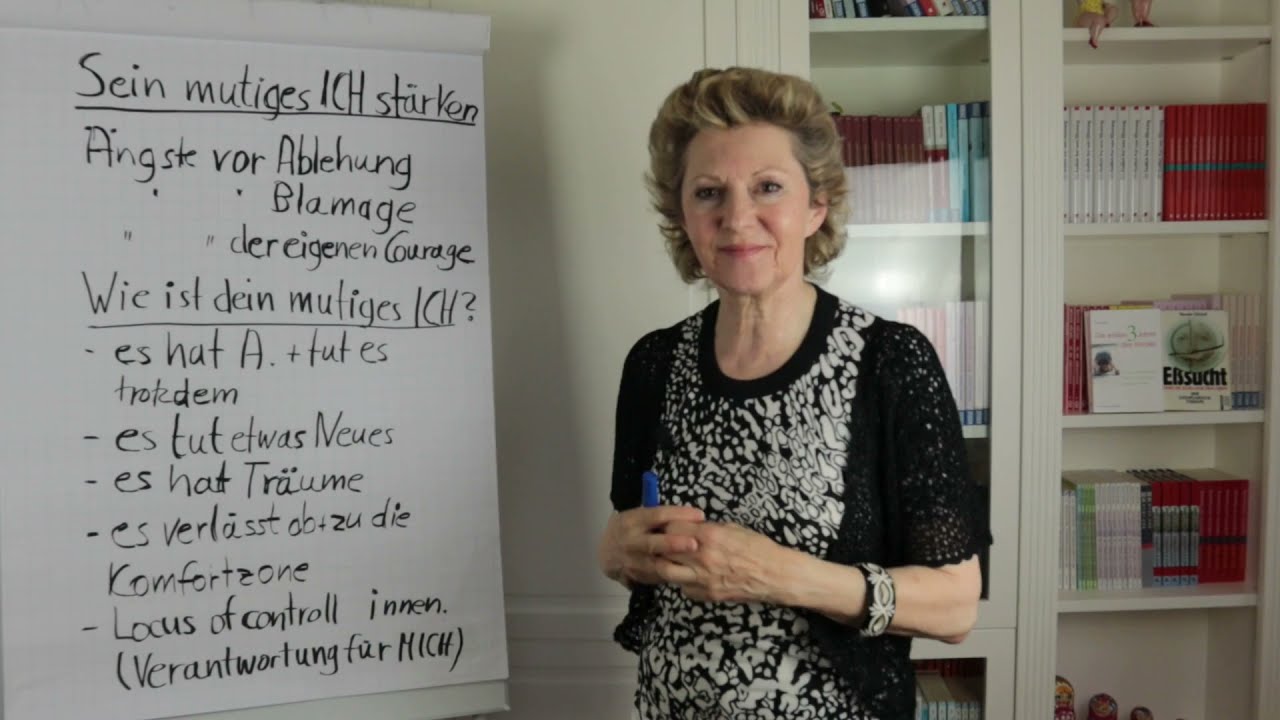 Sein mutiges ICH stärken
Ängste vor Ablehung
" " Blamage
" " der eigenen Courage
Wie ist dein mutiges ICH?
- es hat A. + tut es
trotzdem
- es tut etwas Neues
- es hat Träume
- es verlässt ab+zu die
Komfortzone
- Locus of controll innen.
(Verantwortung für MICH)
Die ersten 3 Jahre
Eßsucht